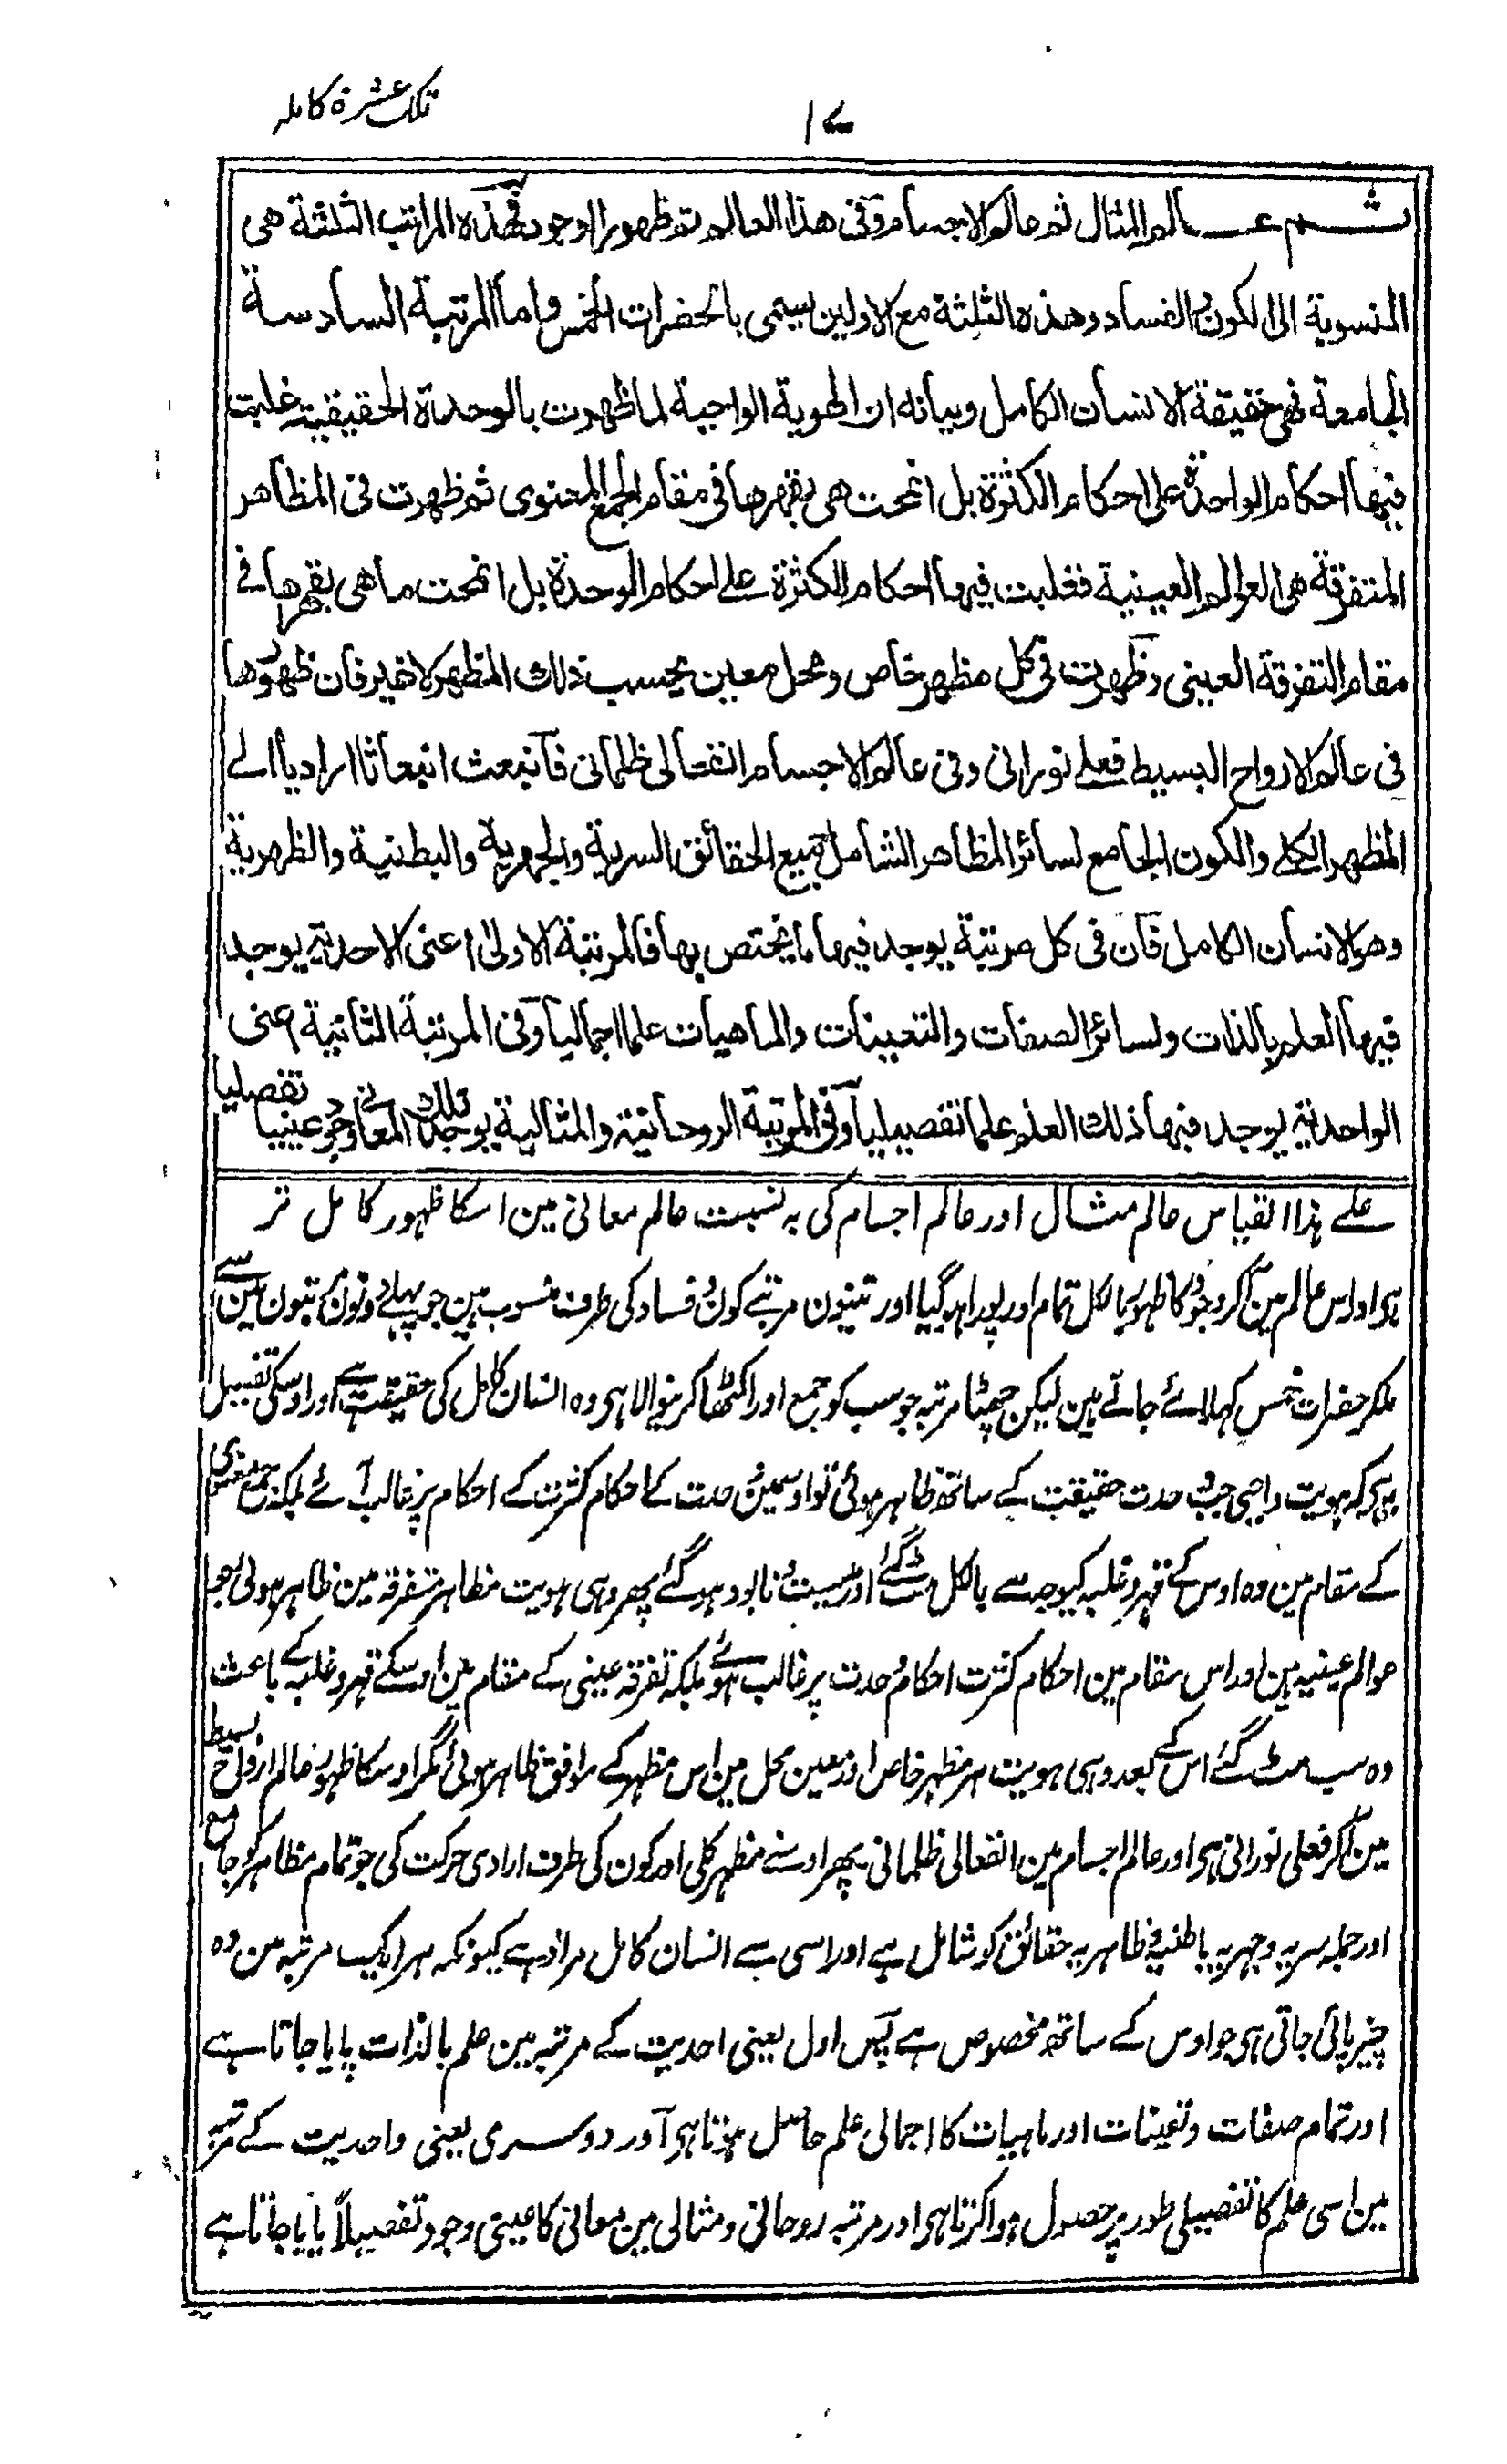 تلک عشرة کاملہ
۱۷
ثم عالم المثال ثم عالم الاجسام وفی هذا العالم تم ظهور الوجود فهذه المراتب الثلثة هی
المنسوبة الی الکون والفساد وهذه الثلثة مع الاولین یسمی بالحضرات الخمس واما المرتبة السادسة
الجامعة فهی حقیقة الانسان الکامل وبیانه ان الهویة الواجبیة لما ظهرت بالوحدة الحقیقیة غلبت
فیها احکام الواحدة علی احکام الکثرة بل انمحت هی بقهرها فی مقام الجمع المعنوی ثم ظهرت فی المظاهر
المتفرقة هی العوالم العینیة فغلبت فیها احکام الکثرة علے احکام الوحدة بل انمحت ما هی بقهرها فے
مقام التفرقة العینی وظهرت فی کل مظهر خاص ومحل معین بحسب ذلک المظهر لا غیر فان ظهورها
فی عالم الارواح البسیط فعلے نورانی وفی عالم الاجسام انفعالی ظلمانی فانبعث انبعاثا ارادیا الے
المظهر الکلے والکون الجامع لسائر المظاهر الشامل جمیع الحقائق السریة والجهریة والبطنیة والظهریة
وهو الانسان الکامل فان فی کل مرتبة یوجد فیها ما یختص بها فالمرتبة الاولی اعنی الاحدیة یوجد
فیها العلم بالذات ولسائر الصفات والتعینات والماهیات علما اجمالیا وفی المرتبة الثانیة اعنی
الواحدیة یوجد فیها ذلک العلم علما تفصیلیا وفی المرتبة الروحانیة والمثالیة یوجد تلک المعانی وجود عینیا تفصلیا
علے ہذا القیاس عالم مثال اور عالم اجسام کی بہ نسبت عالم معانی مین اسکا ظہور کامل تر
ہی اور اس عالم مین آکر وجود کا ظہور بالکل تمام اور پورا ہو گیا اور تینون مرتبے کون و فساد کی طرف منسوب ہین جو پہلے دونون مرتبون مین سے
ملکر حضرات خمس کہلائے جاتے ہین لیکن چھٹا مرتبہ جو سب کو جمع اور اکٹھا کرنیوالا ہی وہ انسان کامل کی حقیقت ہے اور اوسکی تفصیل
یہ ہی کہ ہویت واجبی جب وحدت حقیقت کے ساتھ ظاہر ہوئی تو اوسمین وحدت کے احکام کثرت کے احکام پر غالب آئے بلکہ جمع معنوی
کے مقام مین وہ اوس کے قہر و غلبہ کیوجہ سے بالکل مٹ گئے اور نیست و نابود ہو گئے پھر وہی ہویت مظاہر متفرقہ مین ظاہر ہوئی جو
عوالم عینیہ ہین اور اس مقام مین احکام کثرت احکام وحدت پر غالب ہوئے بلکہ تفرقہ عینی کے مقام مین اوسکے قہر و غلبہ کے باعث
وہ سب مٹ گئے اس کے بعد وہی ہویت ہر مظہر خاص اور معین محل مین اس مظہر کے موافق ظاہر ہوئی مگر اوسکا ظہور عالم ارواح بسیط
مین آکر فعلی نورانی ہی اور عالم اجسام مین انفعالی ظلمانی پھر اوسنے مظہر کلی اور کون کی طرف ارادی حرکت کی جو تمام مظاہر کو جامع
اور جملہ سریہ وجہریہ باطنیہ و ظاہریہ حقائق کو شامل ہے اور اسی سے انسان کامل مراد ہے کیونکہ ہر ایک مرتبہ مین وہ
چیز پائی جاتی ہی جو اوس کے ساتھ مخصوص ہے پس اول یعنی احدیت کے مرتبہ مین علم بالذات پایا جاتا ہے
اور تمام صفات و تعینات اور ماہیات کا اجمالی علم حاصل ہوتا ہی اور دوسری یعنی واحدیت کے مرتبہ
مین اسی علم کا تفصیلی طور پر حصول ہوا کرتا ہی اور مرتبہ روحانی و مثالی مین معانی کا عینی وجود تفصیلاً پایا جاتا ہے